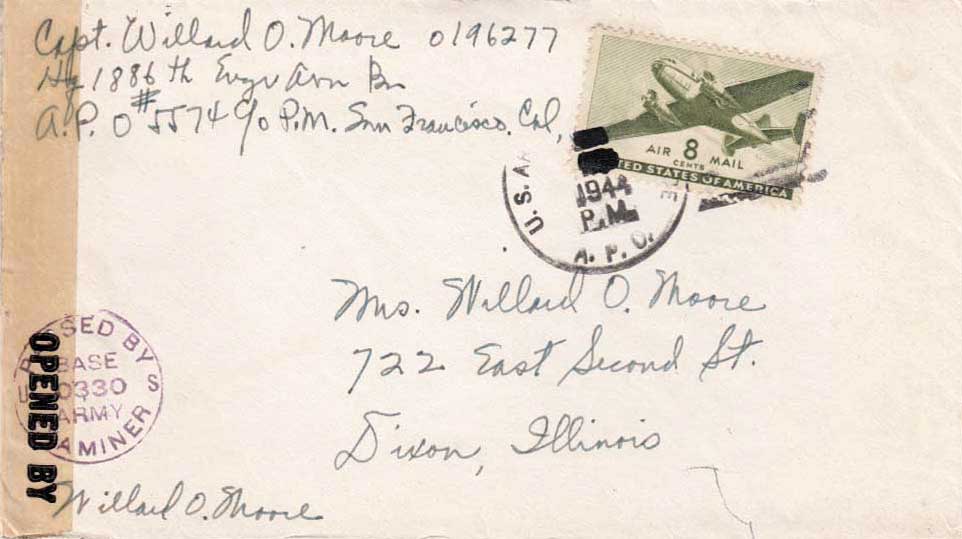 Capt. Willard O. Moore 0196277
Hq 1886th Engr Avn Bn
A.P.O #5574 c/o P.M. San Francisco, Cal,
AIR 8 MAIL
CENTS
UNITED STATES OF AMERICA
U.S. AR
1944
P.M.
A. P. O.
Mrs. Willard O. Moore
722 East Second St.
Dixon, Illinois
PASSED BY
BASE
U 0330 S
ARMY
EXAMINER
OPENED BY
Willard O. Moore